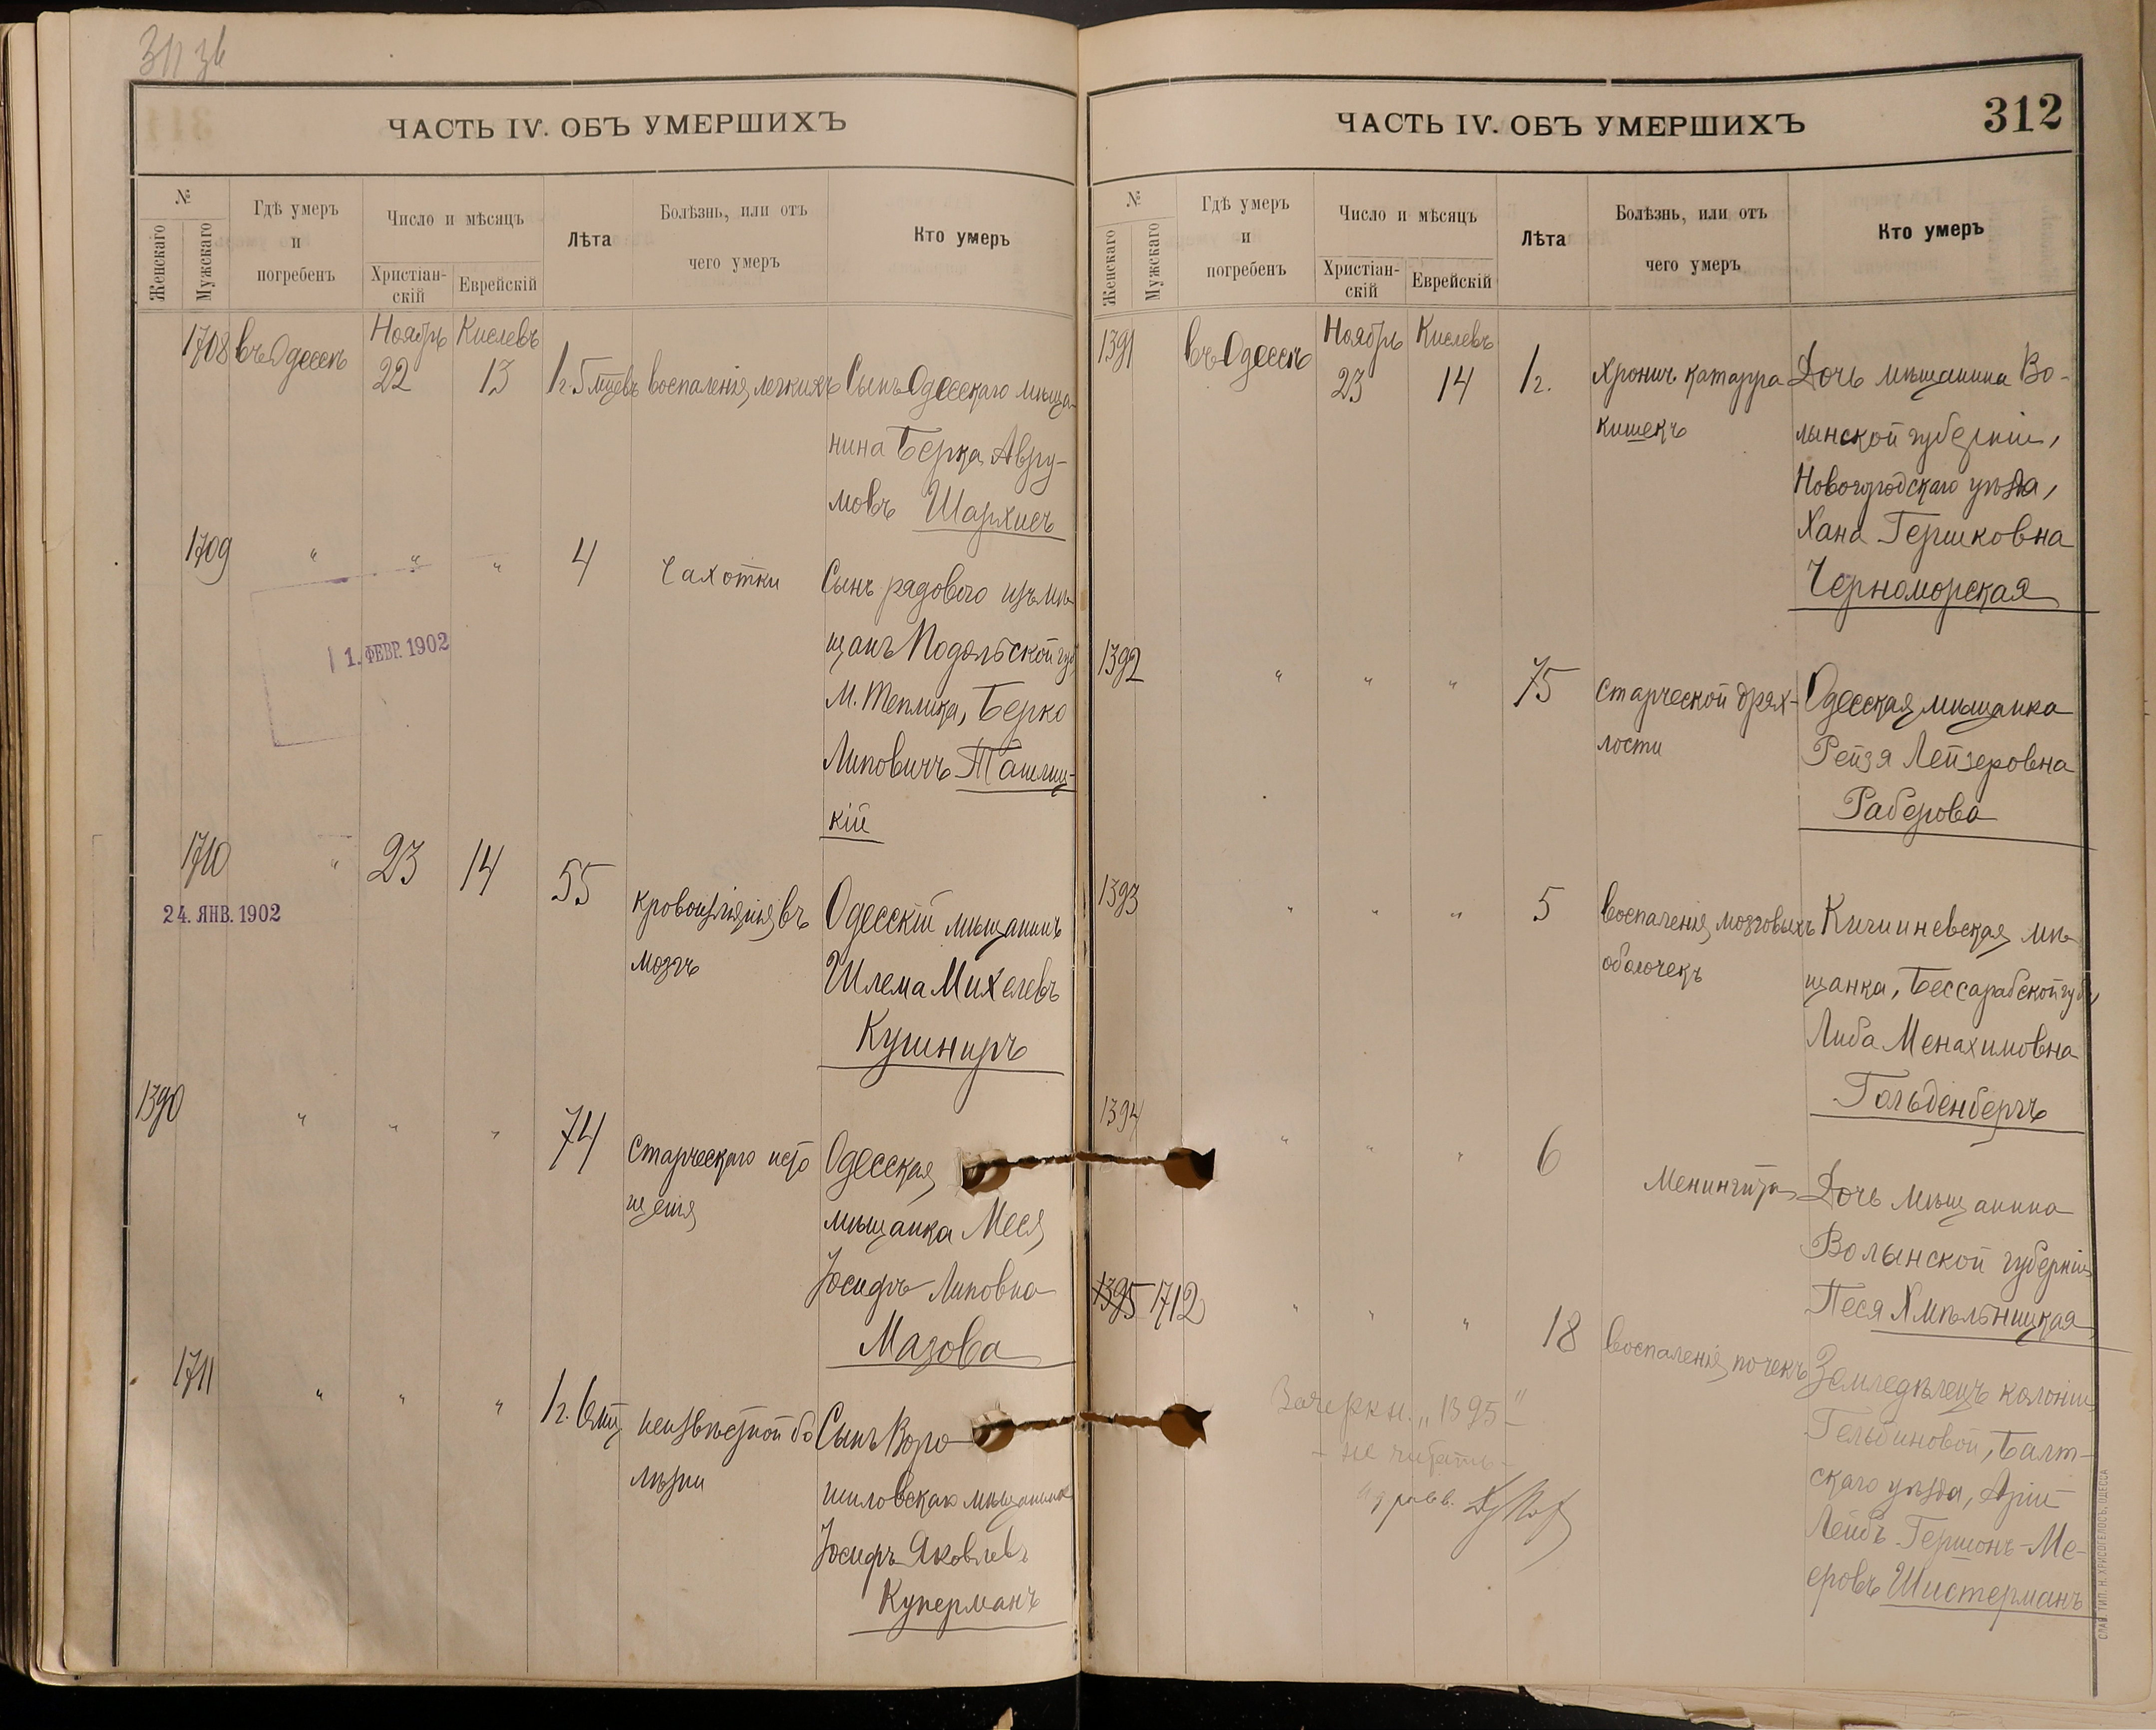 ЧАСТЬ IV. ОБЪ УМЕРШИХЪ
№
Женскаго
Мужскаго
Гдѣ умеръ
и
погребенъ
Число и мѣсяцъ
Христіан-
скій
Еврейскій
Лѣта
Болѣзнь, или отъ
чего умеръ
Кто умеръ
1708 въ Одессѣ
Ноябрь Кислевъ
22 13
1 г. 5 мцевъ воспаленія легкихъ
Сынъ Одесскаго мѣща-
нина Берка Авру-
мовъ Шархисъ
1709 " " " 4 Чахотки
Сынъ рядового изъ мѣ-
щанъ Подольской губ.
М. Теплика, Берко
Липовичъ Ташлиц-
кій
1. ФЕВР. 1902
1710 " 23 14 55
кровоизліянія въ
мозгъ
Одесскій мѣщанинъ
Шлема Михелевъ
Кушниръ
24. ЯНВ. 1902
1390 " " " 74
Старческаго исто
щенія
Одесская
мѣщанка Меся
Іосифъ Липовна
Мазова
1711 " " " 1 г. 6 мц
неизвѣстной бо
лѣзни
Сынъ Воро
шиловскаго мѣщанина
Іосифъ Яковлевъ
Куперманъ
ЧАСТЬ IV. ОБЪ УМЕРШИХЪ
312
№
Женскаго
Мужскаго
Гдѣ умеръ
и
погребенъ
Число и мѣсяцъ
Христіан-
скій
Еврейскій
Лѣта
Болѣзнь, или отъ
чего умеръ
Кто умеръ
1391 въ Одессѣ
Ноябрь Кислевъ
23 14
1 г.
Хронич. катарра
кишекъ
Дочь мѣщанина Во-
лынской губерніи,
Новогородскаго уѣзда,
Хана Гершковна
Черноморская
1392 " " " 75
старческой дрях-
лости
Одесская мѣщанка
Рейзя Лейзеровна
Раберова
1393 " " " 5
воспаленія мозговыхъ
оболочекъ
Кишиневская мѣ
щанка, Бессарабской губ.,
Либа Менахимовна
Гольденбергъ
1394 " " " 6
Менингита
Дочь мѣщанина
Волынской губерніи
Песя Хмѣльницкая
1395 1712 " " " 18
воспаленія почекъ
Земледѣлецъ колоніи
Гельбиновой, Балт-
скаго уѣзда, Арій
Лейбъ Гершонъ-Ме-
еровъ Шистерманъ
Зачеркн. „1395"
- не читать -
СЛАВ. ТИП. Н. ХРИСОГЕЛОСЪ, ОДЕССА